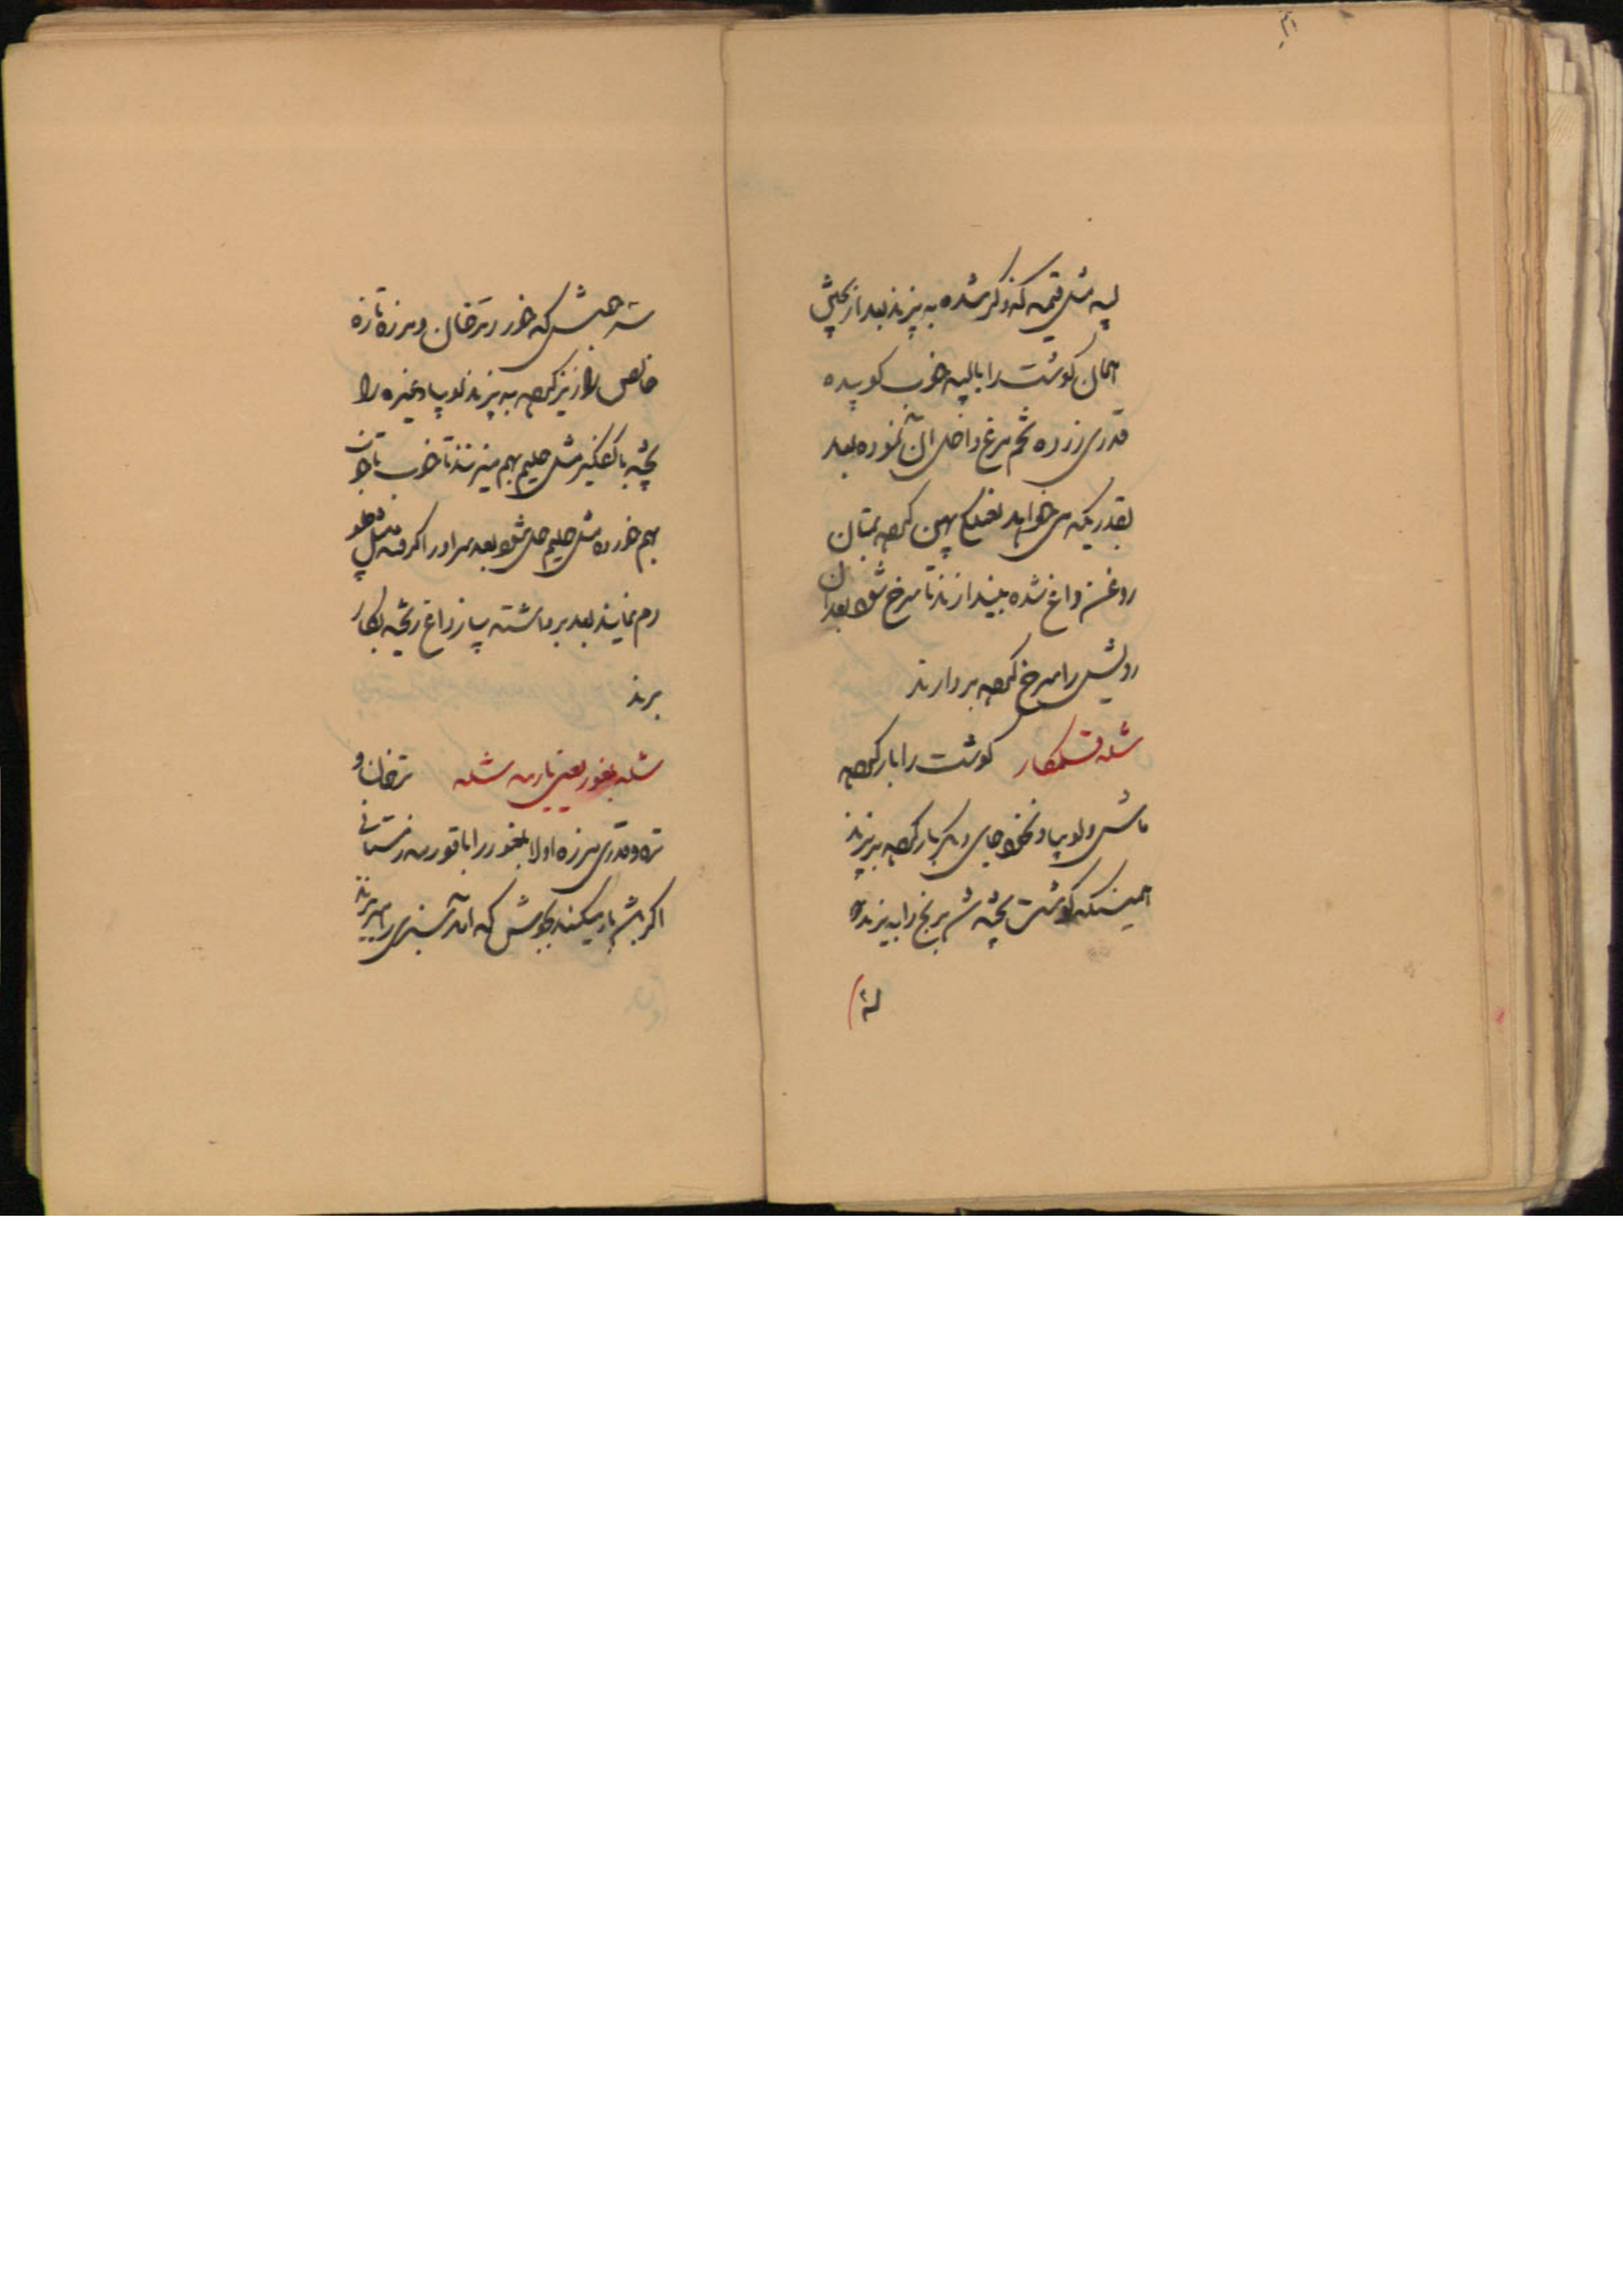 لپه مثل قیمه که ذکر شده به پزند بعد از پختن
همان گوشت را با لپه خوب کوبیده
قدری زرده تخم مرغ داخل آن نموده بعد
بقدریکه می خواهد پهن کرده بمیان
روغن داغ شده بیندازند تا سرخ شود بعد آن
رویش را سرخ کرده بردارند
شله قلمکار گوشت را بار کرده
ماش و لوبیا و نخود جای دیگر بار کرده به پزند
همینکه گوشت پخته شد برنج را بریزند
شد جوش که خورد ترخان و مرزه تازه
خالص را ریز کرده به پزند لوبیا و غیره را
پخته با کفگیر مثل حلیم بهم میزنند تا خوب
بهم خورده مثل حلیم حل شود بعد سر او را گرفته مثل پلو
دم نمایند بعد برداشته پیاز داغ ریخته بکار
برند
شله بلغور یعنی یارمه شله ترخان و
تره و قدری مرزه اولا بلغور را با قورمه زمستانی
اگر باشد بار میکنند بجوش که آمد سبزی